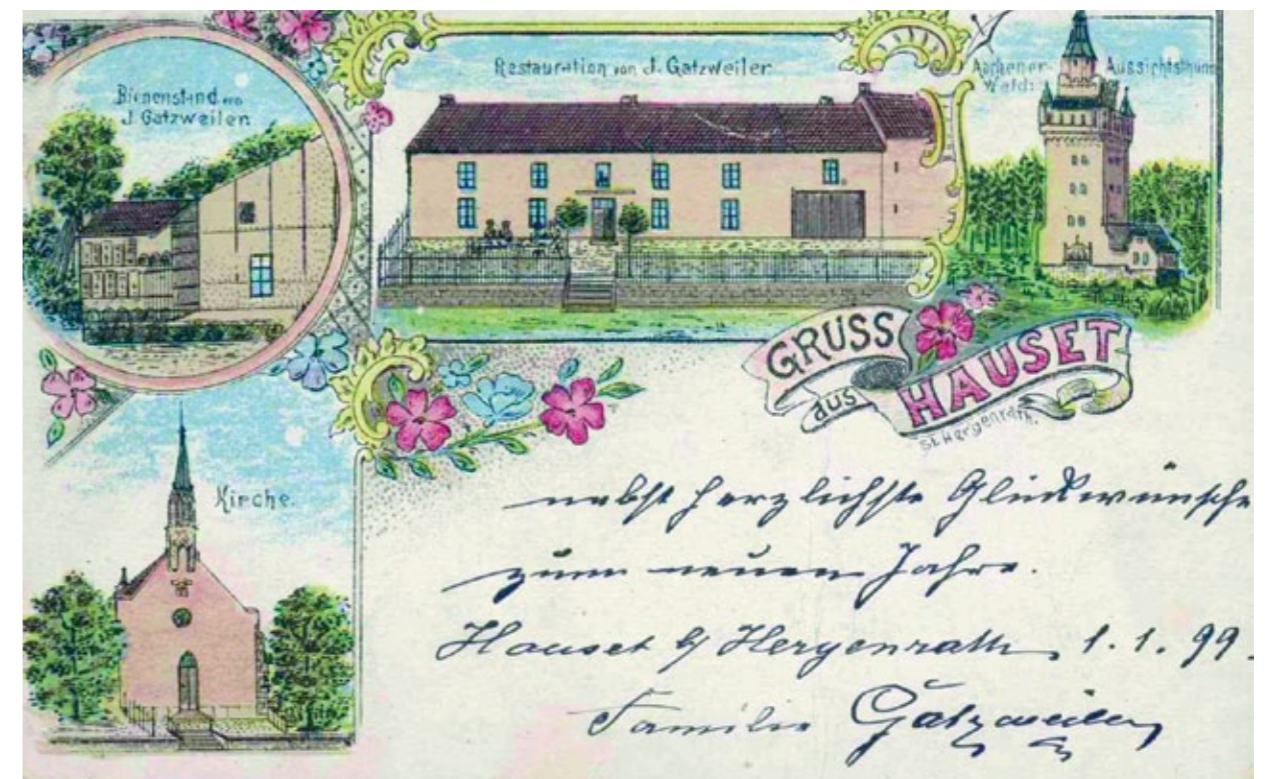 Bienenstand von
J. Gatzweiler
Restauration von J. Gatzweiler
Aachener-
Wald:
Aussichtsthurm
GRUSS
aus
HAUSET
St. Hergenrath.
Kirche.
nebst herzlichste Glückwünsche
zum neuen Jahre.
Hauset b/ Hergenrath, 1.1.99.
Familie Gatzweiler